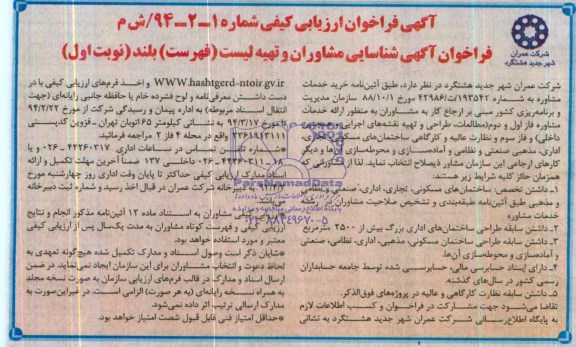 آگهی فراخوان ارزیابی کیفی شماره ۱-۲-۹۴/ش م
فراخوان آگهی شناسایی مشاوران و تهیه لیست (فهرست) بلند (نوبت اول)
شرکت عمران
شهر جدید هشتگرد
شرکت عمران شهر جدید هشتگرد در نظر دارد، طبق آئین‌نامه خرید خدمات
مشاوره به شماره ۱۹۳۵۴۲/ت۴۲۹۸۶ک مورخ ۸۸/۱۰/۱ سازمان مدیریت
و برنامه‌ریزی کشور مبنی بر ارجاع کار به مشاوران به منظور ارائه خدمات
مشاوره فاز اول و دوم (مطالعات، طراحی و تهیه نقشه‌های اجرایی
داخلی) و فاز سوم و نظارت عالیه و کارگاهی ساختمان‌های مسکونی، تجاری،
اداری، مذهبی صنعتی و نظامی و آماده‌سازی و محوطه‌سازی آن‌ها و دیگر
کارهای ارجاعی این سازمان مشاور ذیصلاح انتخاب نماید. لذا از مشاورانی که
همزمان حائز کلیه شرایط زیر هستند.
۱ـ داشتن تخصص، ساختمان‌های مسکونی، تجاری، اداری، صنعتی و نظامی
و مذهبی طبق آئین‌نامه طبقه‌بندی و تشخیص صلاحیت مشاوران
خدمات مشاوره
۲ـ داشتن سابقه طراحی ساختمان‌های اداری بزرگ بیش از ۲۵۰۰ مترمربع
۳ـ داشتن سابقه طراحی ساختمان مسکونی، مذهبی، اداری، نظامی، صنعتی
و آماده‌سازی و محوطه‌سازی آن‌ها.
۴ـ دارای اسناد حسابرسی مالی، حسابرسی شده توسط جامعه حسابداران
رسمی کشور در سال‌های گذشته.
۵ـ داشتن سابقه نظارت کارگاهی و عالیه در پروژه‌های فوق‌الذکر.
تقاضا می‌شود جهت مشارکت در فراخوان و کسب اطلاعات لازم
به پایگاه اطلاع‌رسانی شرکت عمران شهر جدید هشتگرد به نشانی
WWW.hashtgerd-ntoir.gv.ir و اخذ فرم‌های ارزیابی کیفی با در
دست داشتن معرفی‌نامه و لوح فشرده خام یا حافظه جانبی رایانه‌ای (جهت
انتقال اسناد مربوطه) به اداره پیمان و رسیدگی شرکت از مورخ ۹۴/۲/۲۲
تا مورخ ۹۴/۳/۱۷ به نشانی کیلومتر ۶۵ اتوبان تهران - قزوین کدپستی
۳۳۶۱۹۴۳۱۱۱ واقع در محله ۴ فاز ۲ مراجعه فرمائید.
*شماره تلفن تماس در ساعات اداری ۴۴۲۶۰۳۱۷-۰۲۶ و یا
۱۸-۴۴۲۶۰۳۱۱-۰۲۶ داخلی ۱۳۷ ضمناً آخرین مهلت تکمیل و ارائه
اسناد مدارک ارزیابی کیفی حداکثر تا پایان وقت اداری روز چهارشنبه مورخ
به دبیرخانه شرکت عمران در قبال اخذ رسید و شماره ثبت دبیرخانه
مشاوران به استناد ماده ۱۲ آئین‌نامه مذکور انجام و نتایج
ارزیابی کیفی و فهرست کوتاه مشاوران به مدت یک‌سال پس از ارزیابی کیفی
معتبر و مورد استفاده خواهد بود.
*شایان ذکر است وصول اسناد و مدارک تکمیل شده هیچ‌گونه تعهدی به
لحاظ دعوت و انتخاب مشاوران برای این سازمان ایجاد نمی‌نماید. در ضمن
ارسال اسناد و مدارک در قالب فرم‌های ارزیابی سازمان به صورت نسخه مجلد
به همراه نسخه رایانه‌ای (به هر صورت) الزامی است. در غیر این‌صورت به
مدارک ارسالی ترتیب اثر داده نمی‌شود.
*حداقل امتیاز فنی قابل قبول شصت امتیاز خواهد بود.
ParsNamadData
۰۲۱-۸۸۳۴۹۶۷۰-۵